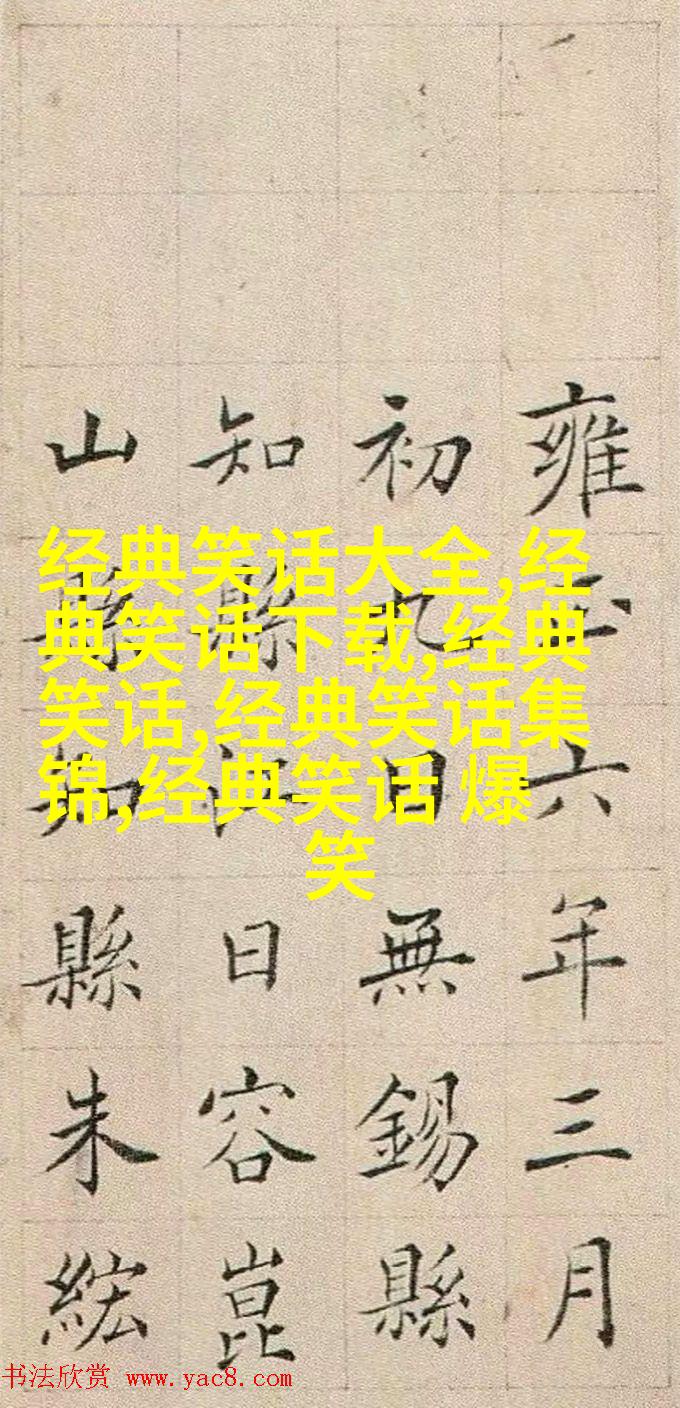 经典笑话大全,经
典笑话下载,经典
笑话,经典笑话集
锦,经典笑话 爆
笑
雍正六年三月
初九日無錫縣
知縣江日容崑
山縣知縣朱紘
书法欣赏 www.yac8.com